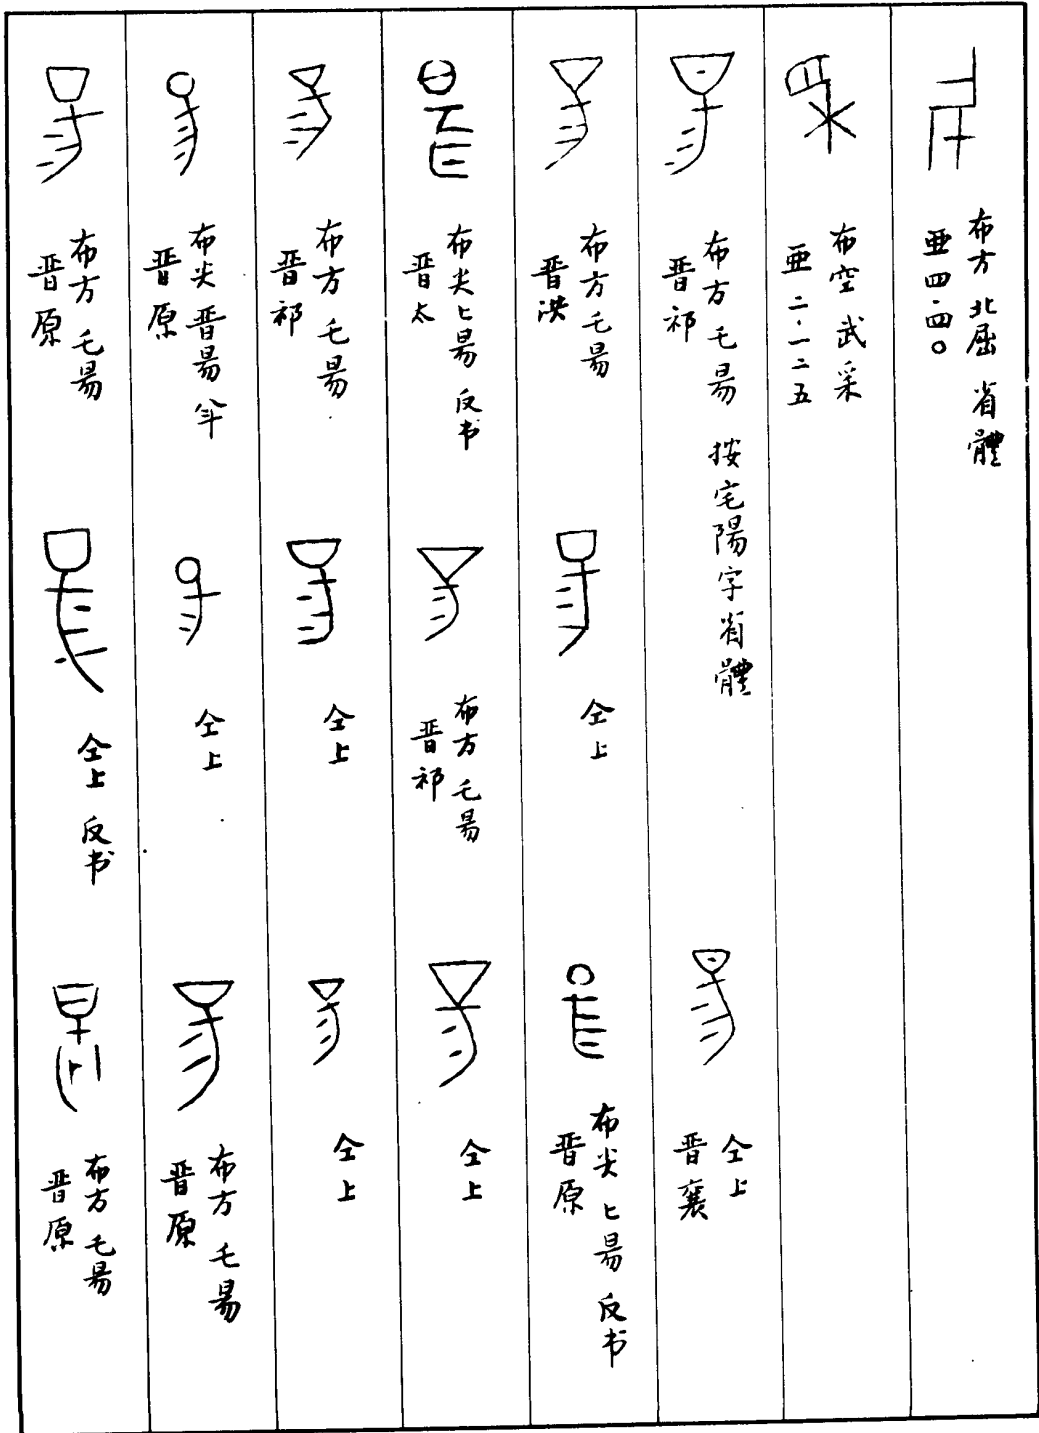 布方 北屈 省體
亜 四·四〇
布空 武采
亜 二·一二五
布方 乇昜 按宅陽字省體
晋祁
仝上
晋襄
布方 乇昜
晋洪
仝上
布尖 匕昜 反书
晋原
布尖 匕昜 反书
晋太
布方 乇昜
晋祁
仝上
布方 乇昜
晋祁
仝上
仝上
布尖 晋昜
晋原
仝上
布方 乇昜
晋原
布方 乇昜
晋原
仝上 反书
布方 乇昜
晋原